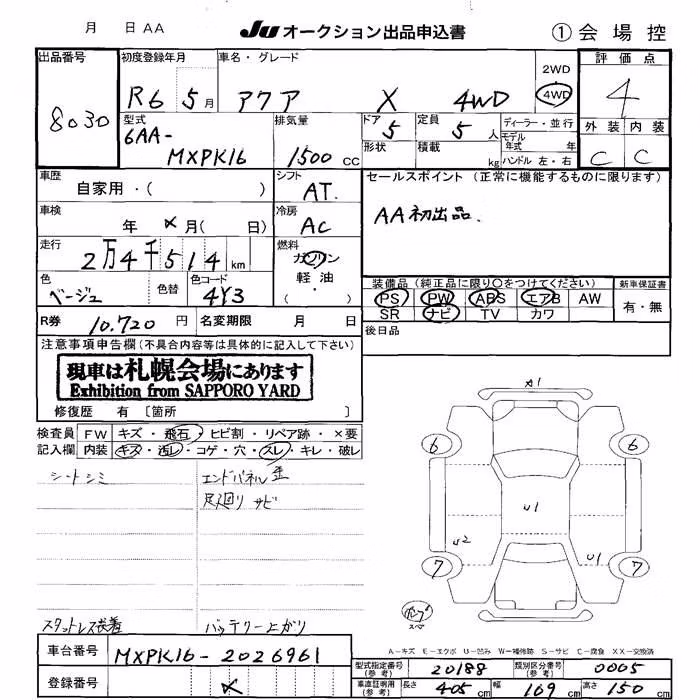 月 日 AA JU オークション出品申込書 ① 会場控
出品番号 初度登録年月 車名・グレード 評価点
8030 R6 5月 アクア X 4WD 2WD 4WD 4
型式 排気量 ドア 定員 ディーラー・並行 外装 内装
6AA- MXPK16 1500 CC 5 5人 モデル年式 年 C C
形状 積載 kg ハンドル 左・右
車歴 シフト セールスポイント (正常に機能するものに限ります)
自家用・( ) AT.
車検 冷房 AA初出品.
年 メ月( 日) AC
走行 燃料
2万4千514km ガソリン
軽油
・( )
色 色替 色コード 装備品(純正品に限り○をつけてください) 新車保証書
ベージュ 4Y3 PS PW ABS エアB AW 有・無
SR ナビ TV カワ
R券 10.720円 名変期限 月 日 後日品
注意事項申告欄(不具合内容等は具体的に記入して下さい)
現車は札幌会場にあります
Exhibition from SAPPORO YARD
修復歴 有 〔箇所 〕
検査員 FW キズ・飛石・ヒビ割・リペア跡・×要
記入欄 内装 キズ・汚レ・コゲ・穴・スレ・キレ・破レ
シートシミ エンドパネル歪
足廻り サビ
A1
6 6
U1
U2 U1
7 7
スペ
スタットレス装着 バッテリー上がり
A-キズ E-エクボ U-凹み W-補修跡 S-サビ C-腐食 XX-交換済
車台番号 MXPK16-2026961
型式指定番号(参考) 20188 類別区分番号(参考) 0005
登録番号 メ
車庫証明用(参考) 長さ 405cm 幅 169cm 高さ 150cm